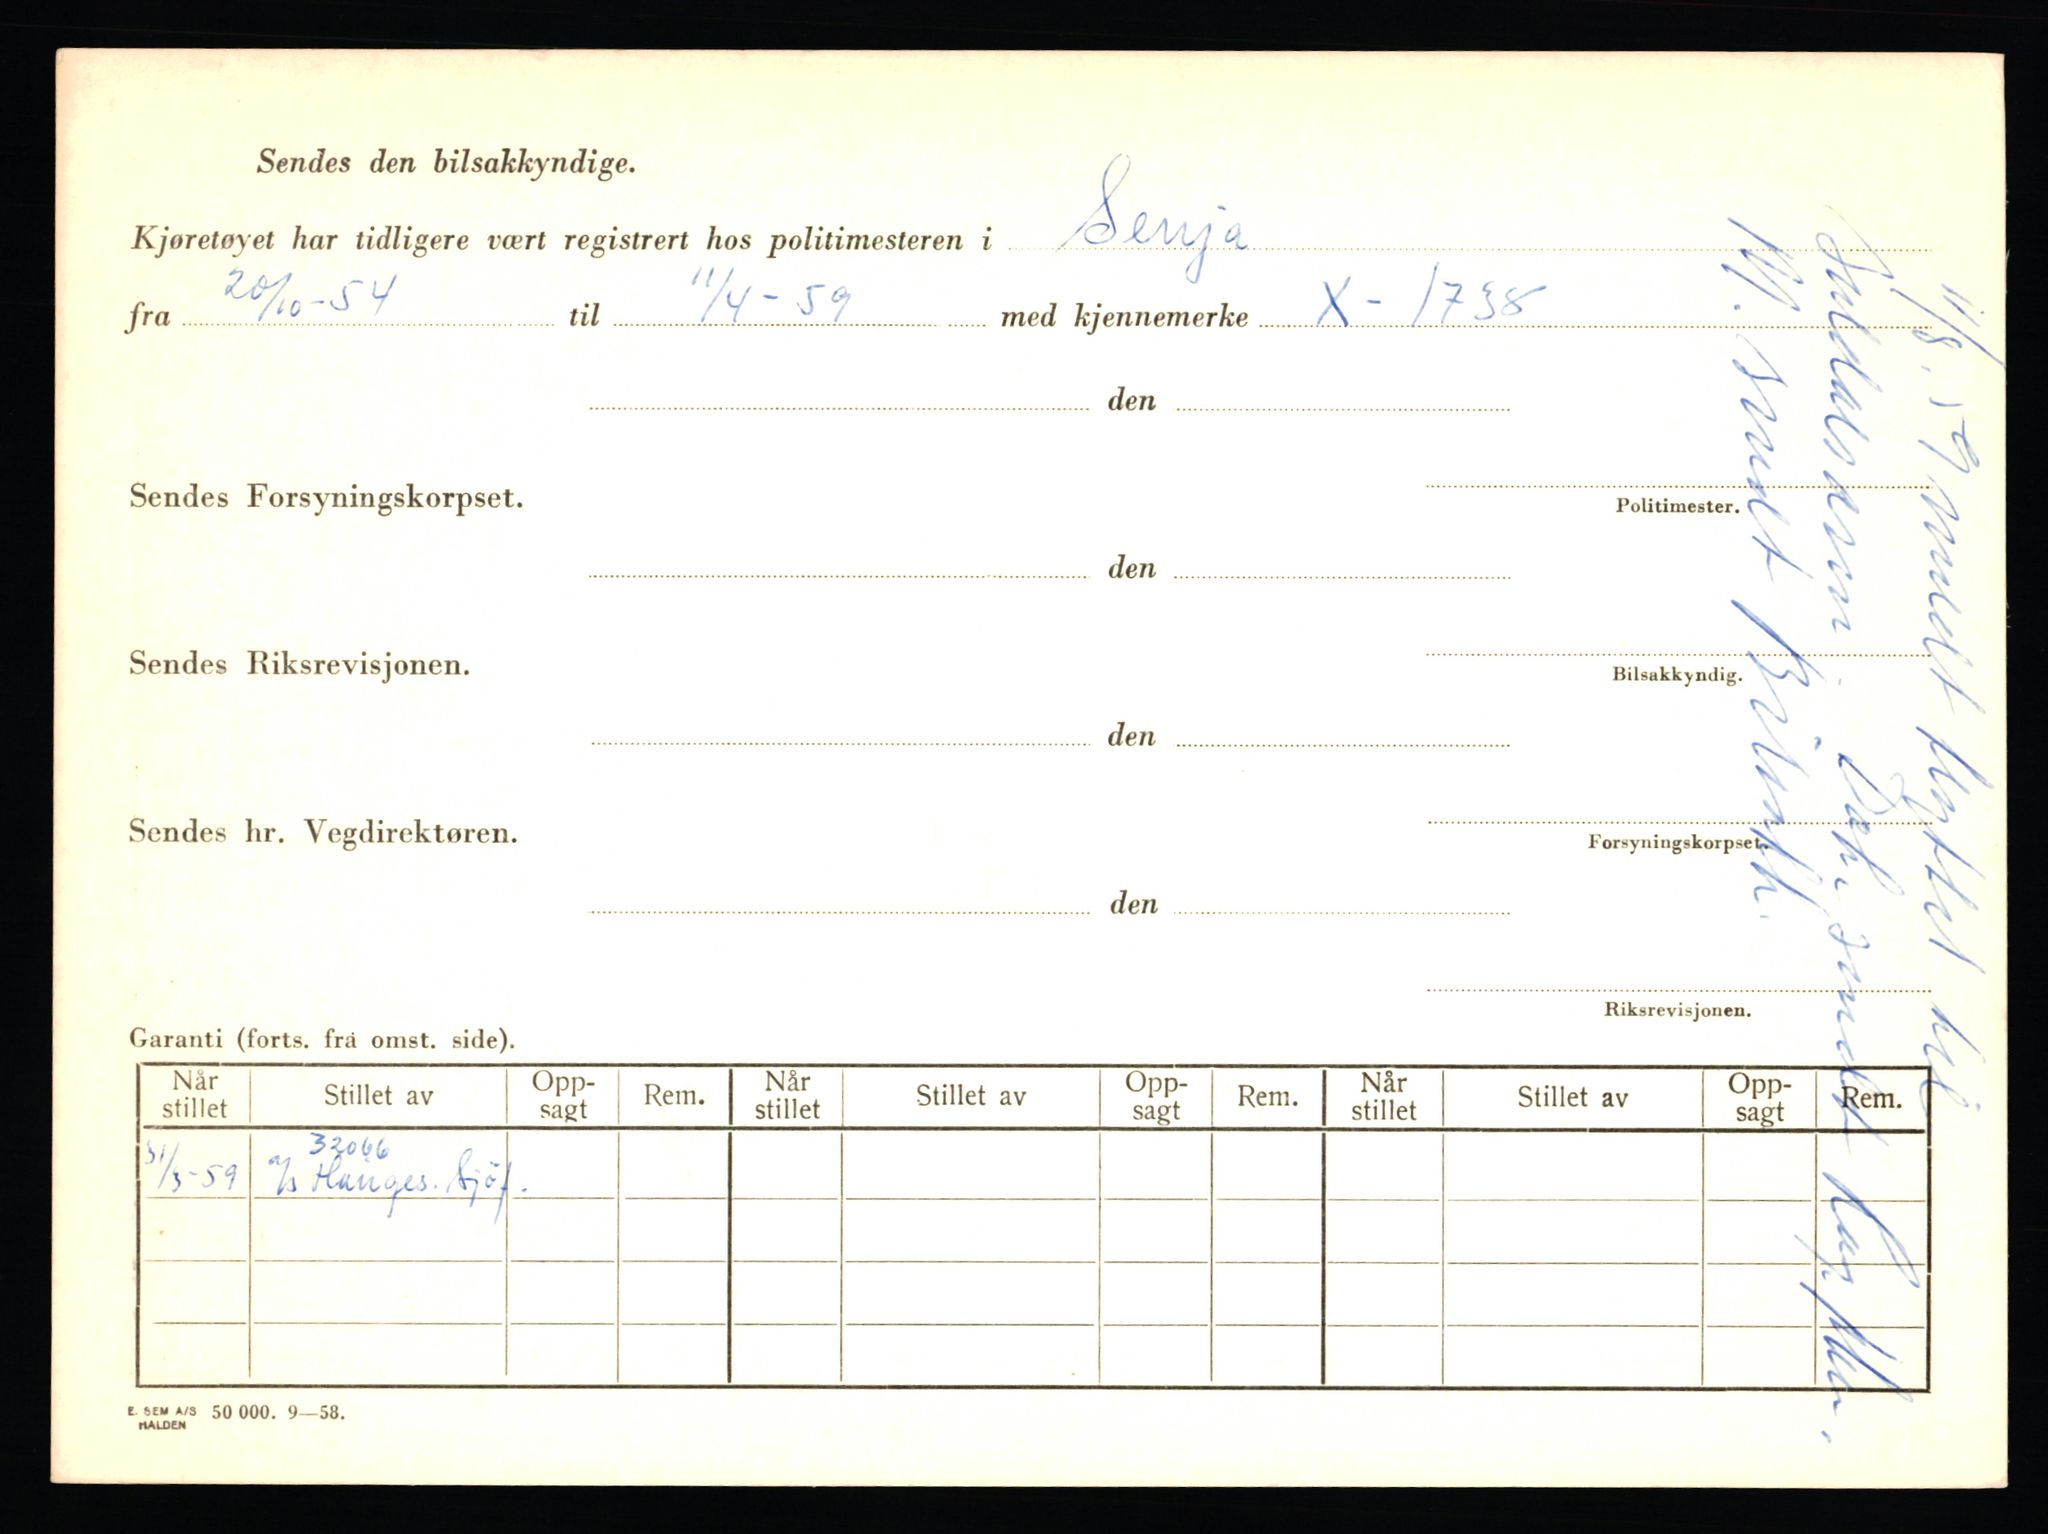 Sendes den bilsakkyndige.
Kjøretøyet har tidligere vært registrert hos politimesteren i Senja
fra 20/10-54 til 11/4-59 med kjennemerke X-1738
den
Sendes Forsyningskorpset.
Politimester.
den
Sendes Riksrevisjonen.
Bilsakkyndig.
den
Sendes hr. Vegdirektøren.
Forsyningskorpset.
den
Riksrevisjonen.
Garanti (forts. fra omst. side).
Når stillet Stillet av Opp-sagt Rem. Når stillet Stillet av Opp-sagt Rem. Når stillet Stillet av Opp-sagt Rem.
32066
31/3-59 a/s Hauges. Sjöf.
E. SEM A/S HALDEN 50 000. 9—58.
11/8.59 flyttet til